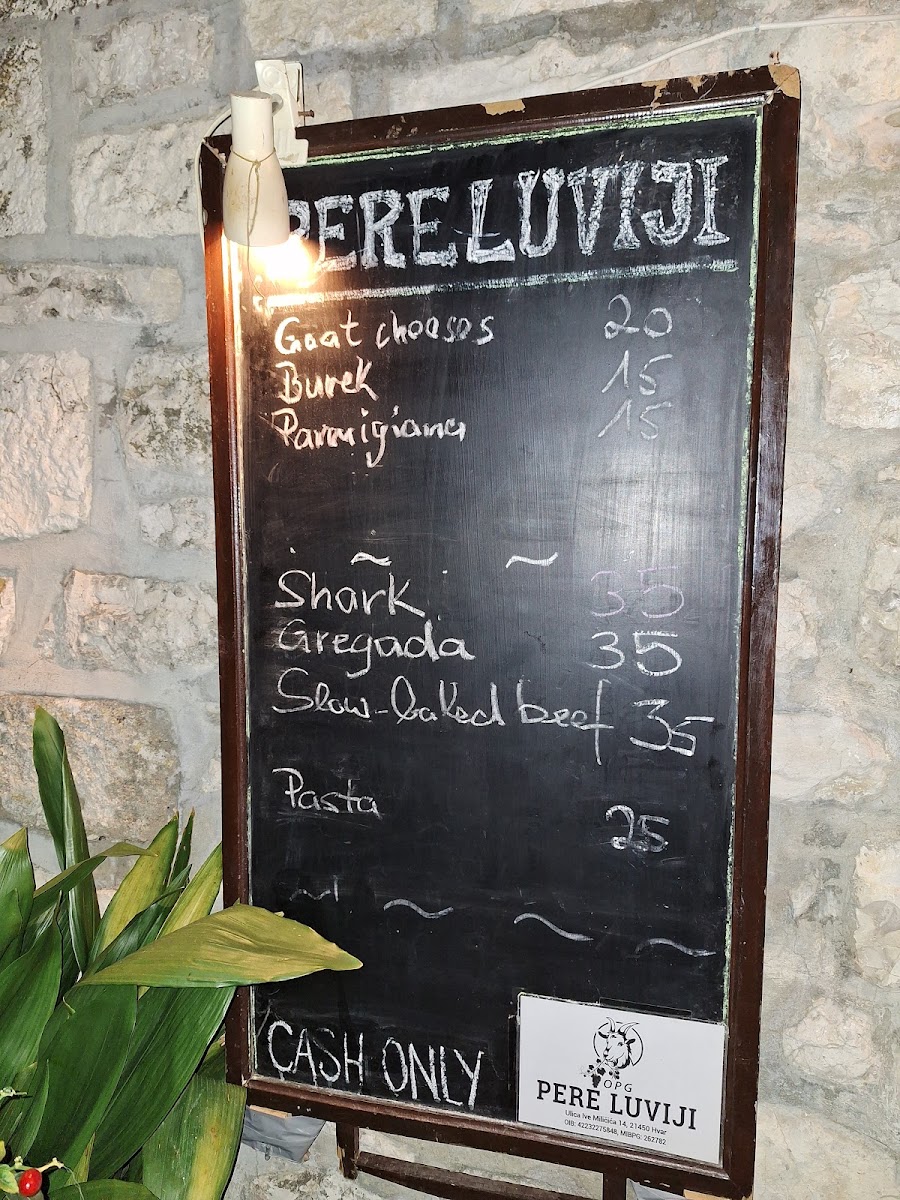 PERE LUVIJI
Goat cheeses 20
Burek 15
Parmigiana 15
Shark 35
Gregada 35
Slow-baked beef 35
Pasta 25
CASH ONLY
OPG
PERE LUVIJI
Ulica Ive Miličića 14, 21450 Hvar
OIB: 42232275848, MIBPG: 262782